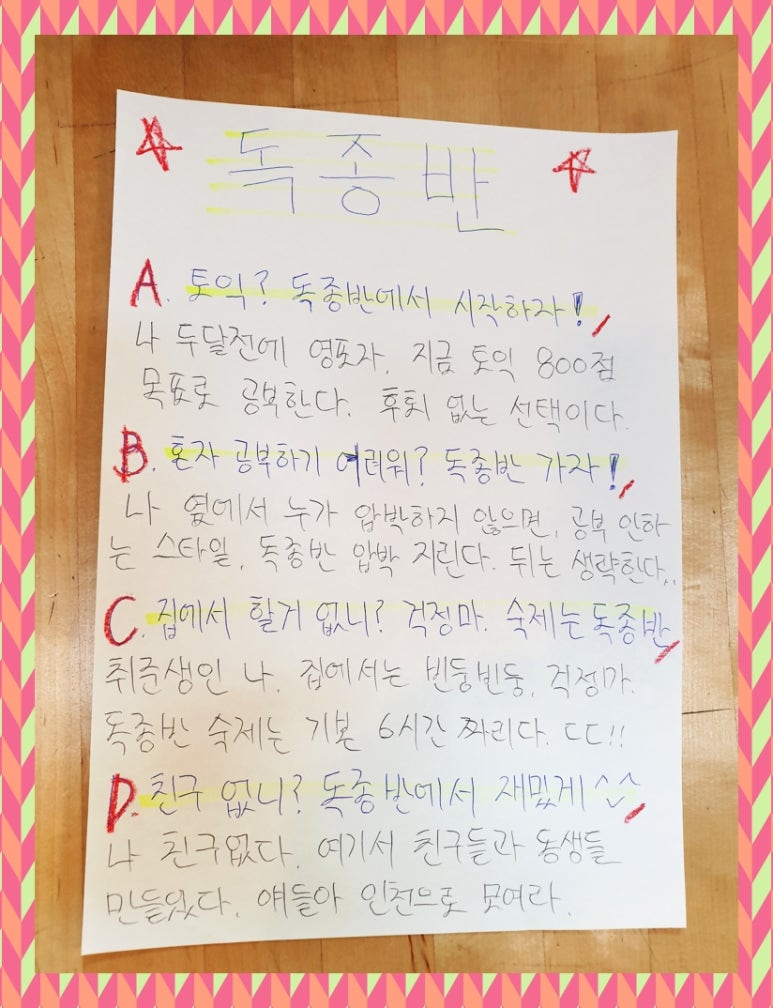 독종반
A. 토익? 독종반에서 시작하자!
나 두달전에 영포자. 지금 토익 800점
목표로 공부한다. 후회 없는 선택이다.
B. 혼자 공부하기 어려워? 독종반 가자!
나 옆에서 누가 압박하지 않으면, 공부 안하
는 스타일, 독종반 압박 지린다. 뒤는 생략한다..
C. 집에서 할거 없니? 걱정마. 숙제는 독종반
취준생인 나. 집에서는 빈둥빈둥, 걱정마.
독종반 숙제는 기본 6시간 짜리다. ㄷㄷ!!
D. 친구 없니? 독종반에서 재밌게 ^^
나 친구없다. 여기서 친구들과 동생들
만들었다. 얘들아 인천으로 모여라.